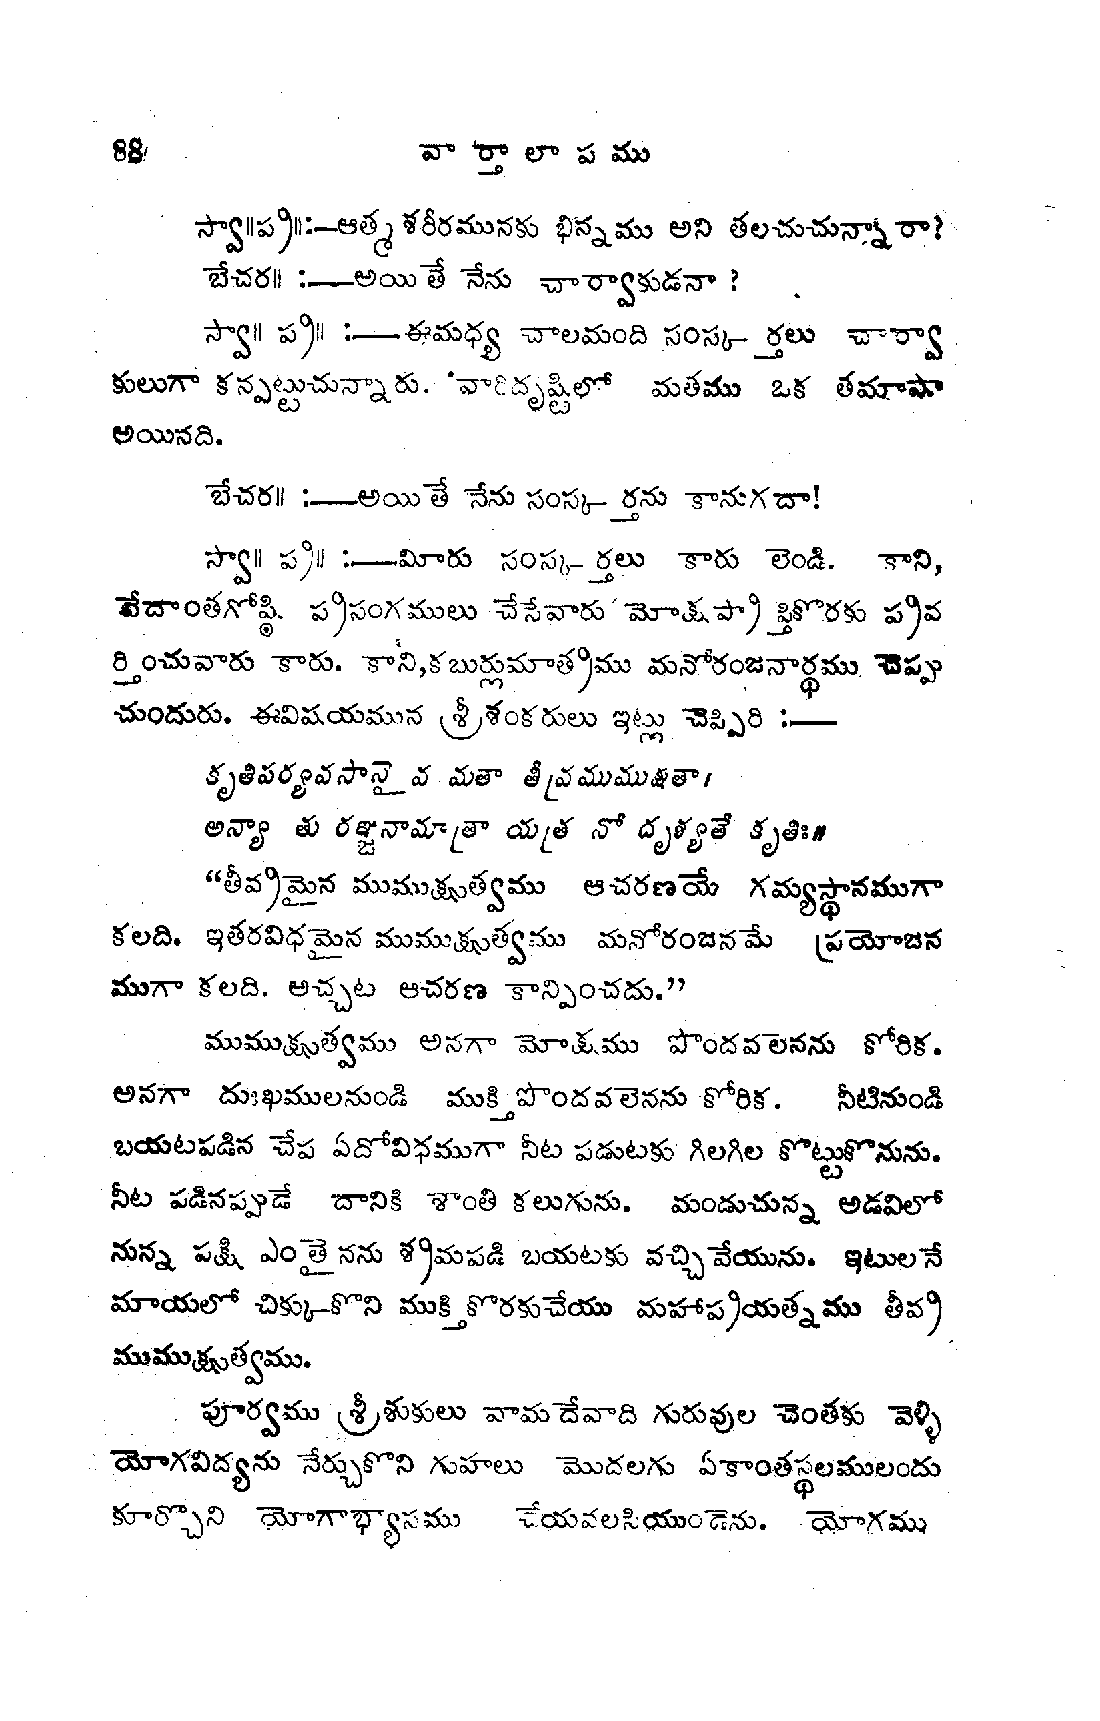 88
వార్తాలాపము
స్వా॥ప్ర॥:—ఆత్మ శరీరమునకు భిన్నము అని తలచుచున్నారా?
బేచర॥ :—అయితే నేను చార్వాకుడనా ?
స్వా॥ ప్ర॥ :—ఈమధ్య చాలమంది సంస్కర్తలు చార్వా
కులుగా కన్పట్టుచున్నారు. వారిదృష్టిలో మతము ఒక తమాషా
అయినది.
బేచర॥ :—అయితే నేను సంస్కర్తను కానుగదా!
స్వా॥ ప్ర॥ :—మీరు సంస్కర్తలు కారు లెండి. కాని,
వేదాంతగోష్ఠి ప్రసంగములు చేసేవారు మోక్షప్రాప్తికొరకు ప్రవ
ర్తించువారు కారు. కాని,కబుర్లుమాత్రము మనోరంజనార్థము చెప్పు
చుందురు. ఈవిషయమున శ్రీశంకరులు ఇట్లు చెప్పిరి :—
కృతిపర్యవసానైవ మతా తీవ్రముముక్షుతా।
అన్యా తు రఞ్జనామాత్రా యత్ర నో దృశ్యతే కృతిః॥
“తీవ్రమైన ముముక్షుత్వము ఆచరణయే గమ్యస్థానముగా
కలది. ఇతరవిధమైన ముముక్షుత్వము మనోరంజనమే ప్రయోజన
ముగా కలది. అచ్చట ఆచరణ కాన్పించదు.”
ముముక్షుత్వము అనగా మోక్షము పొందవలెనను కోరిక.
అనగా దుఃఖములనుండి ముక్తిపొందవలెనను కోరిక. నీటినుండి
బయటపడిన చేప ఏదోవిధముగా నీట పడుటకు గిలగిల కొట్టుకొనును.
నీట పడినప్పుడే దానికి శాంతి కలుగును. మండుచున్న అడవిలో
నున్న పక్షి ఎంతైనను శ్రమపడి బయటకు వచ్చివేయును. ఇటులనే
మాయలో చిక్కుకొని ముక్తికొరకుచేయు మహాప్రయత్నము తీవ్ర
ముముక్షుత్వము.
పూర్వము శ్రీశుకులు వామదేవాది గురువుల చెంతకు వెళ్ళి
యోగవిద్యను నేర్చుకొని గుహలు మొదలగు ఏకాంతస్థలములందు
కూర్చొని యోగాభ్యాసము చేయవలసియుండెను. యోగము